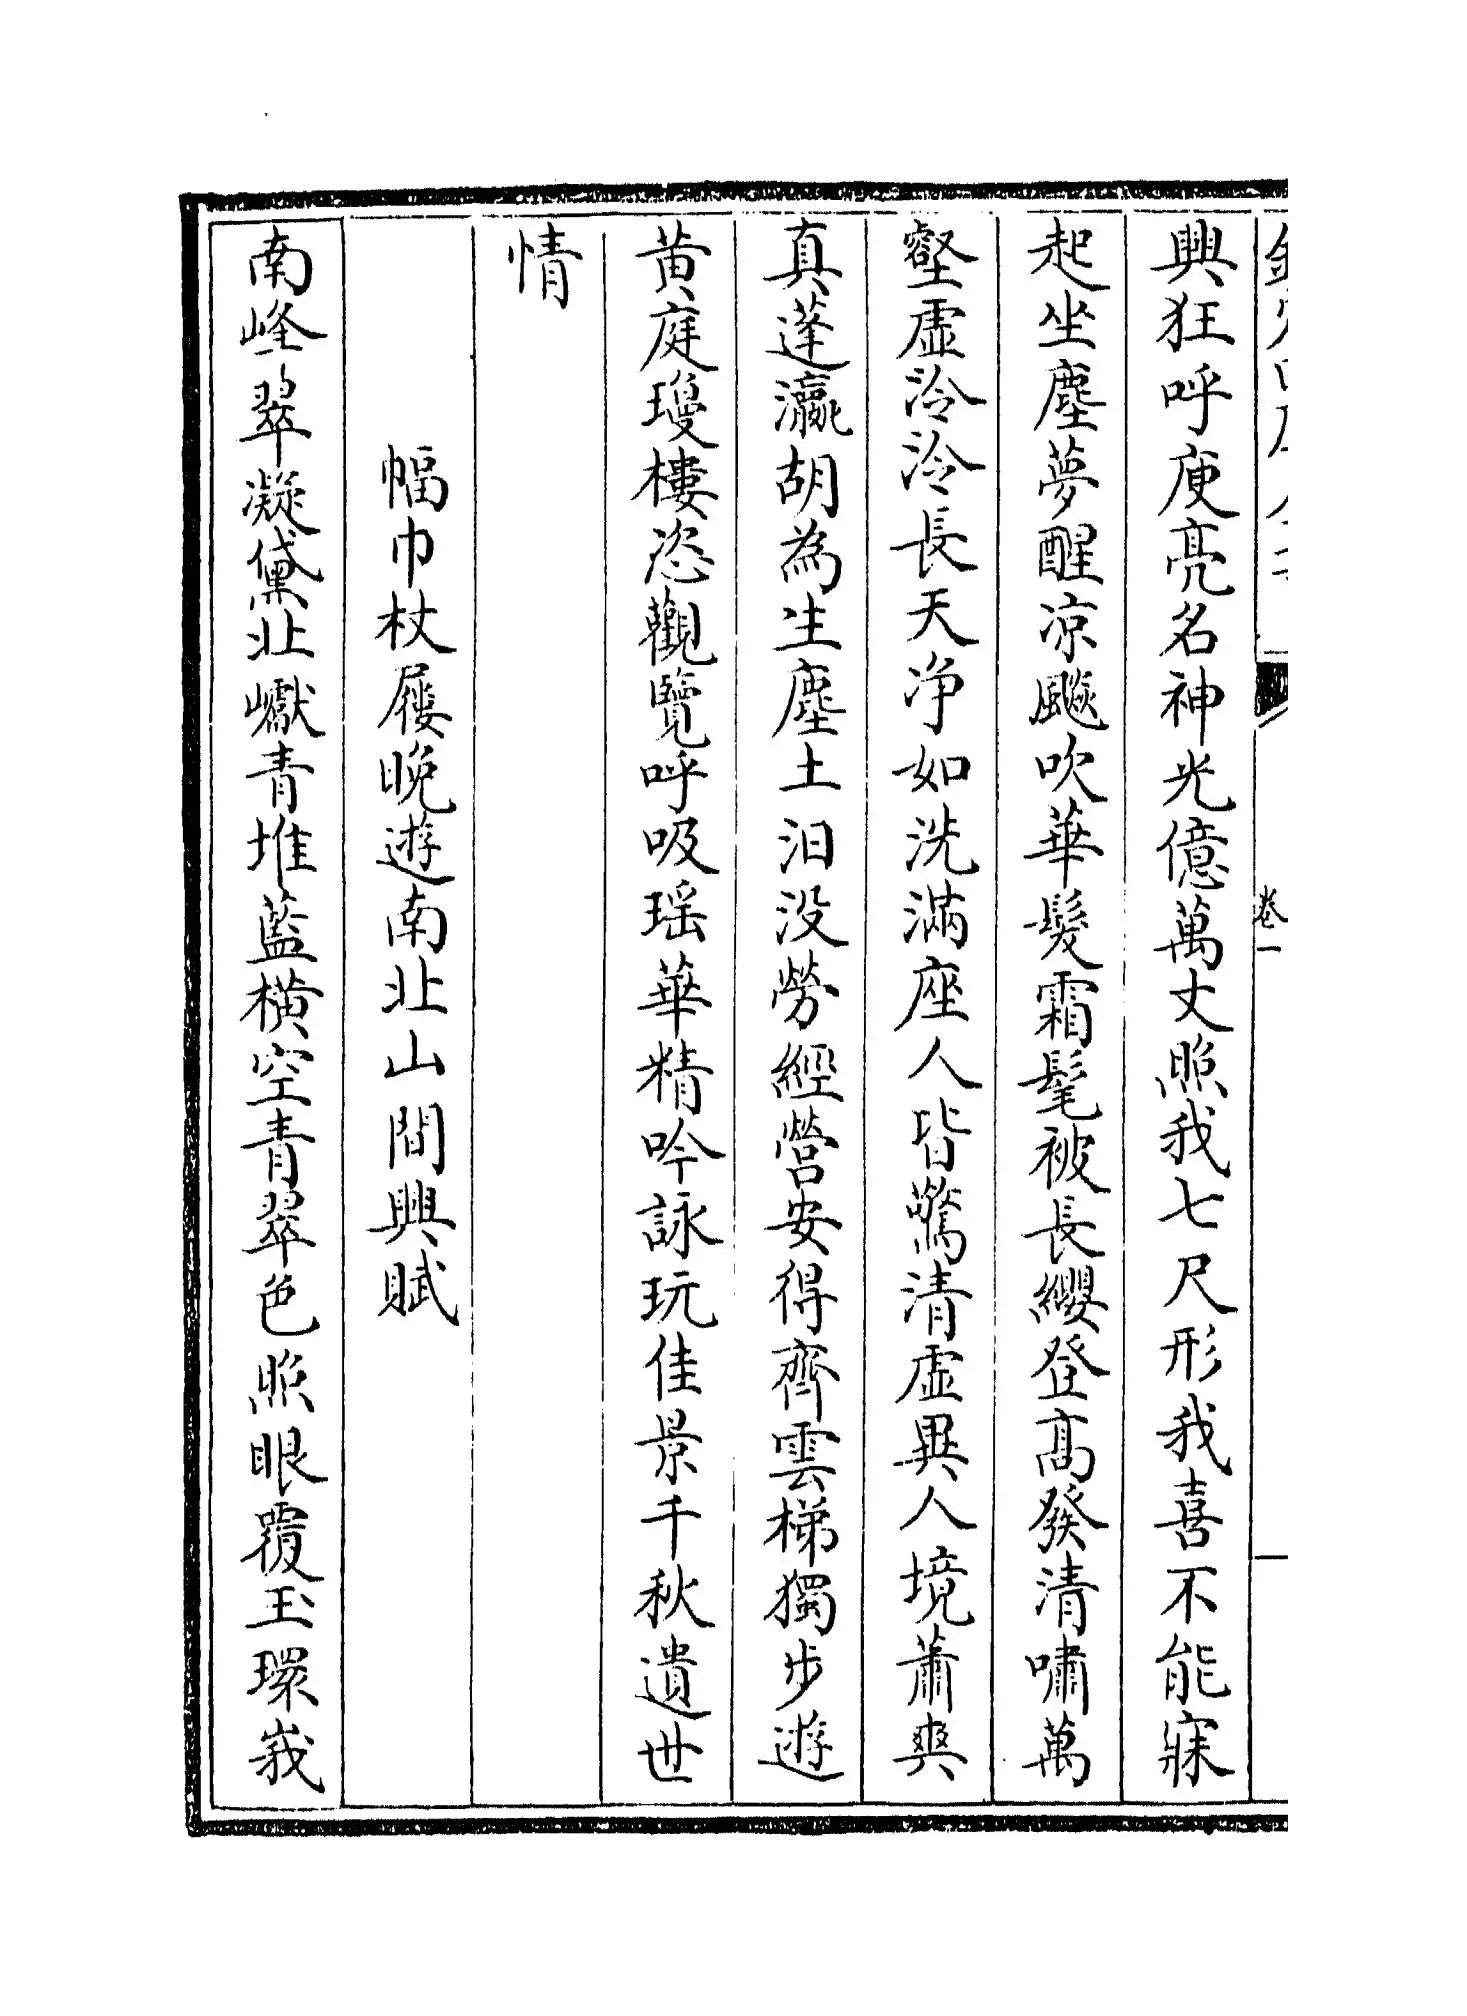 卷一
興狂呼庾亮名神光億萬丈照我七尺形我喜不能寐
起坐塵夢醒凉飈吹華髮霜髦被長纓登髙發清嘯萬
壑虛泠泠長天净如洗滿座人皆驚清虛異人境蕭爽
真蓬瀛胡為生塵土汨没勞經營安得齊雲梯獨步遊
黄庭瓊樓恣觀覽呼吸瑶華精吟詠玩佳景千秋遺世
情
幅巾杖屨晚遊南北山間興賦
南峰翠凝黛北巘青堆藍橫空青翠色照眼覆玉環峩